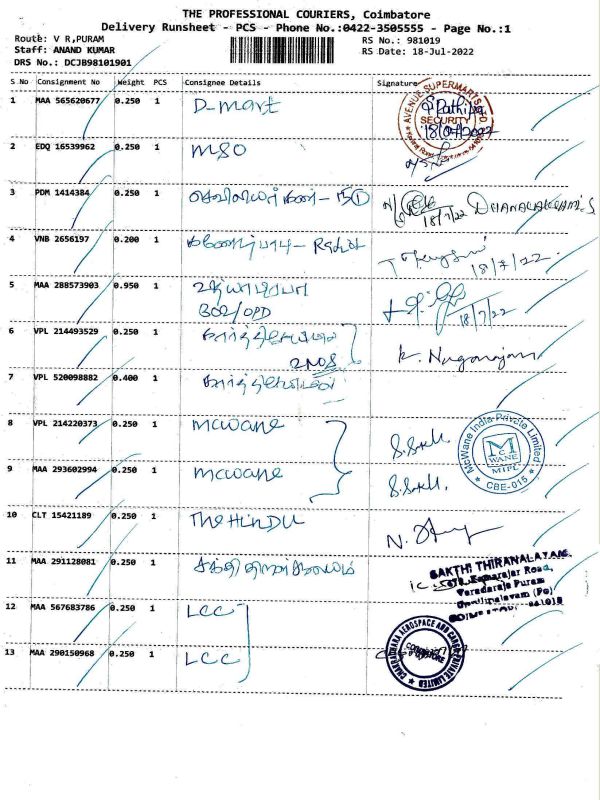 THE PROFESSIONAL COURIERS, Coimbatore
Delivery Runsheet - PCS - Phone No.:0422-3505555 - Page No.:1
Route: V R,PURAM RS No.: 981019
Staff: ANAND KUMAR RS Date: 18-Jul-2022
DRS No.: DCJB98101901
S No Consignment No Weight PCS Consignee Details Signature
1 MAA 565620677 0.250 1 D-mart
AVENUE SUPERMARTS LTD.
SECURITY
2 EDQ 16539962 0.250 1 MSO
3 PDM 1414384 0.250 1 18/7/22 DHANALAKSHMI.S
4 VNB 2656197 0.200 1 18/7/22
5 MAA 288573903 0.950 1
BOB/OPD 18/7/22
6 VPL 214493529 0.250 1 K. Nagarajan
2NOS
7 VPL 520098882 0.400 1
8 VPL 214220373 0.250 1 mcwane
McWane India Private Limited
McWANE
MIPL
CBE-015
9 MAA 293602994 0.250 1 mcwane
10 CLT 15421189 0.250 1 THE HINDU
11 MAA 291128081 0.250 1
SAKTHI THIRANALAYAM
Kamarajar Road,
Varadaraja Puram
12 MAA 567683786 0.250 1 LCC
13 MAA 290150968 0.250 1 LCC